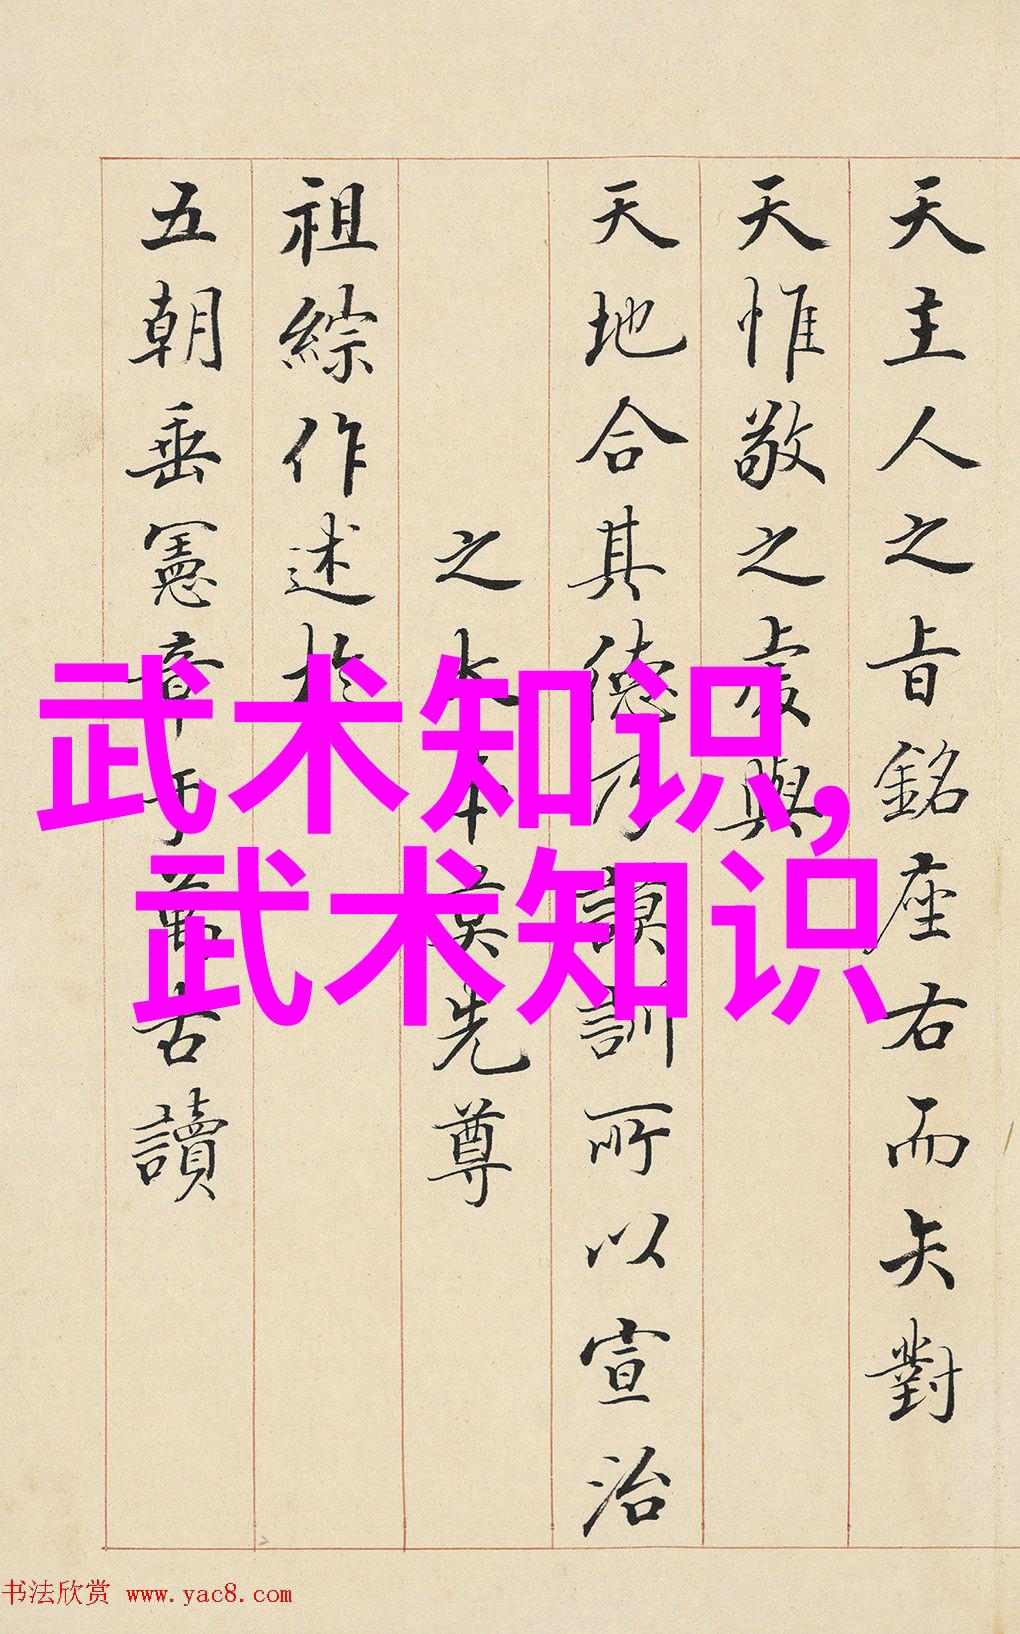 天主人之旨銘座右而矢對
天惟敬之處與
天地合其德乃謨訓所以宣治
之大本莫先尊
祖綜作述於
五朝垂憲章于萬古讀
武术知识,
武术知识
书法欣赏 www.yac8.com